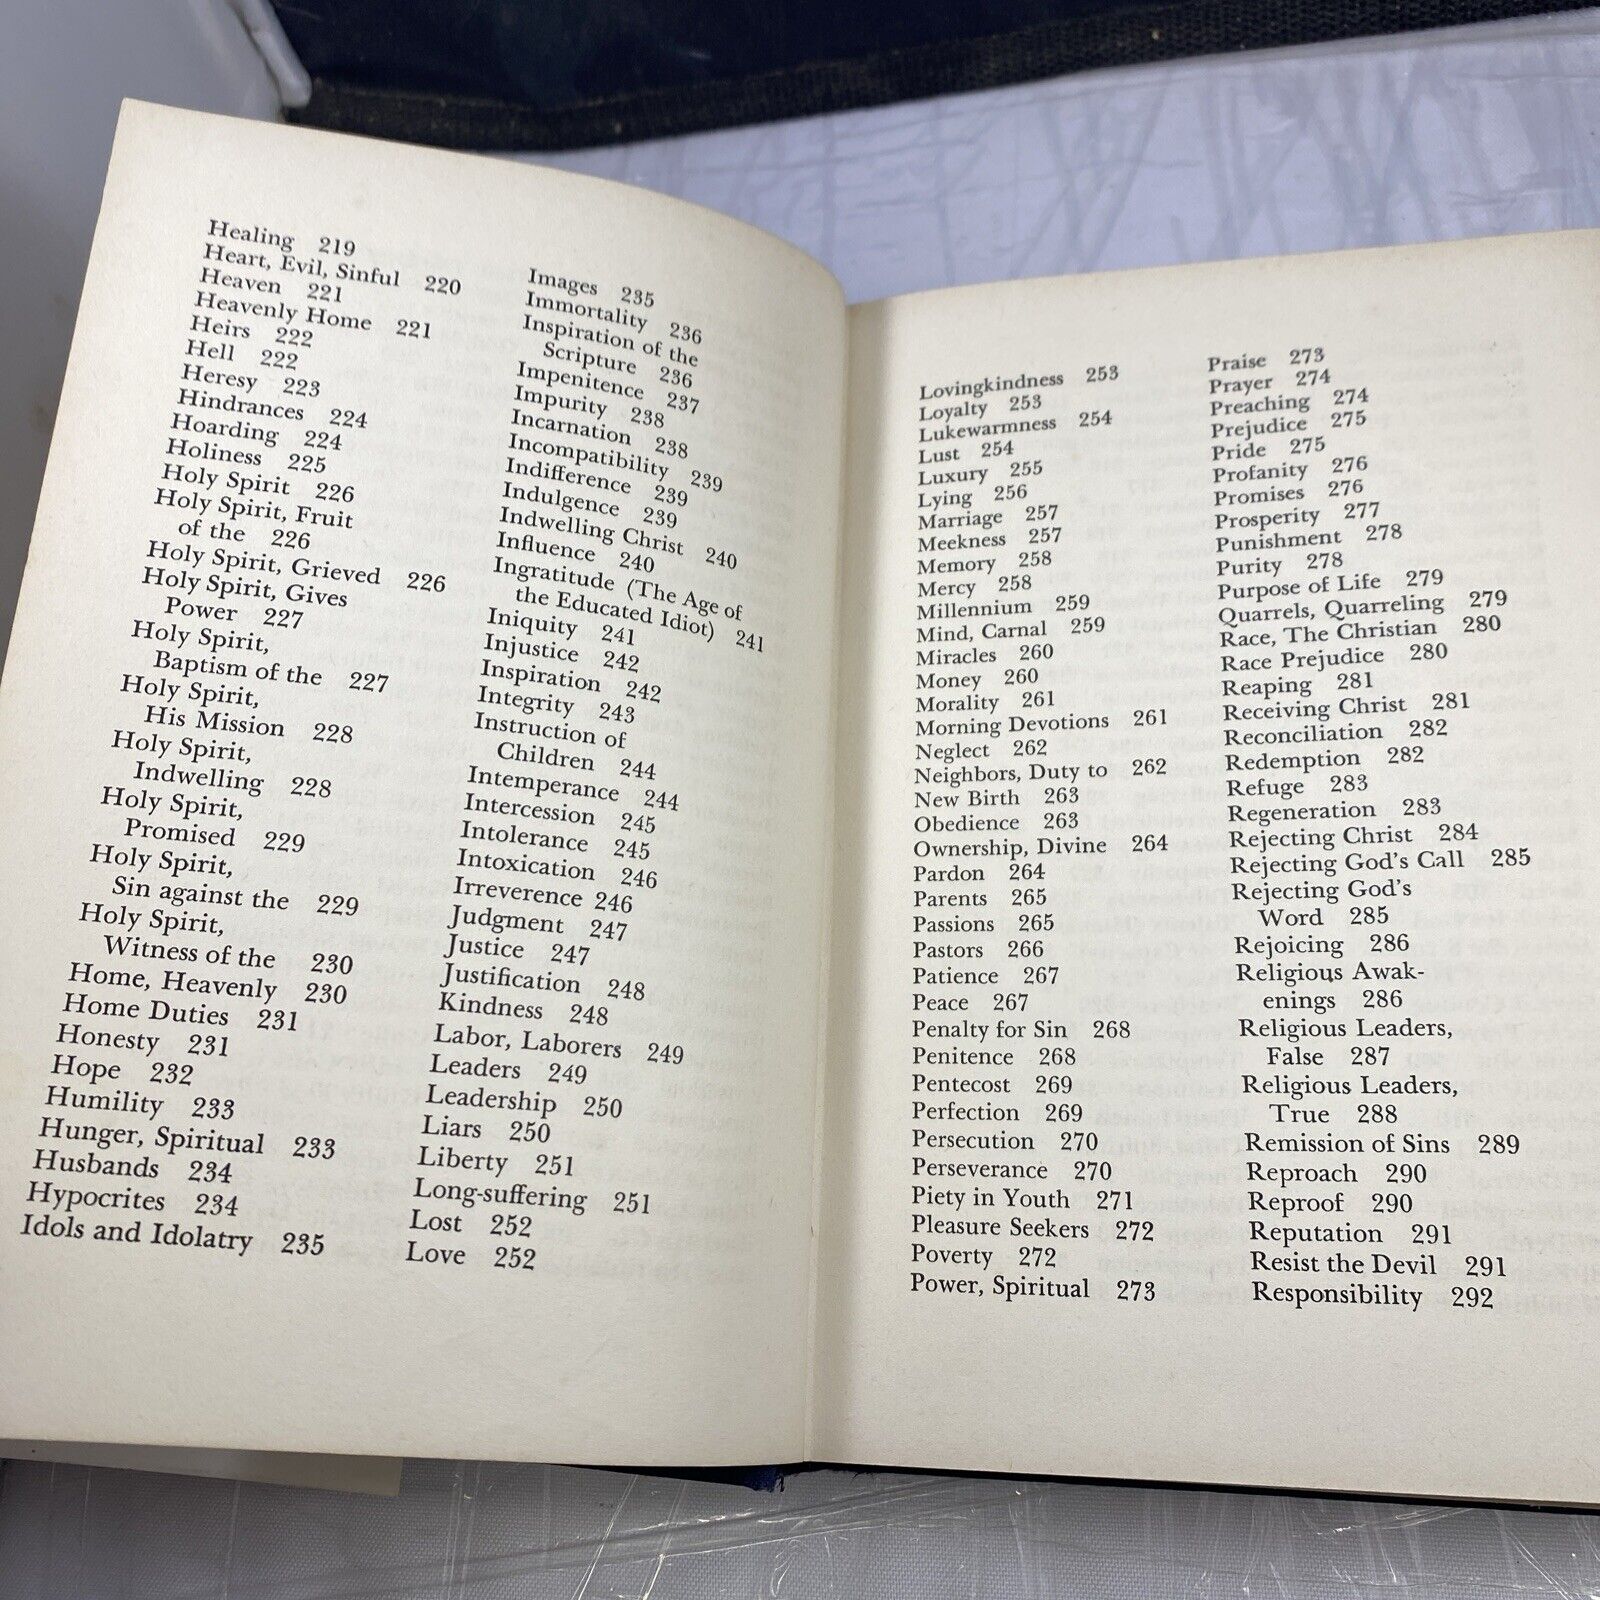 Healing 219
Heart, Evil, Sinful 220
Heaven 221
Heavenly Home 221
Heirs 222
Hell 222
Heresy 223
Hindrances 224
Hoarding 224
Holiness 225
Holy Spirit 226
Holy Spirit, Fruit
of the 226
Holy Spirit, Grieved 226
Holy Spirit, Gives
Power 227
Holy Spirit,
Baptism of the 227
Holy Spirit,
His Mission 228
Holy Spirit,
Indwelling 228
Holy Spirit,
Promised 229
Holy Spirit,
Sin against the 229
Holy Spirit,
Witness of the 230
Home, Heavenly 230
Home Duties 231
Honesty 231
Hope 232
Humility 233
Hunger, Spiritual 233
Husbands 234
Hypocrites 234
Idols and Idolatry 235
Images 235
Immortality 236
Inspiration of the
Scripture 236
Impenitence 237
Impurity 238
Incarnation 238
Incompatibility 239
Indifference 239
Indulgence 239
Indwelling Christ 240
Influence 240
Ingratitude (The Age of
the Educated Idiot) 241
Iniquity 241
Injustice 242
Inspiration 242
Integrity 243
Instruction of
Children 244
Intemperance 244
Intercession 245
Intolerance 245
Intoxication 246
Irreverence 246
Judgment 247
Justice 247
Justification 248
Kindness 248
Labor, Laborers 249
Leaders 249
Leadership 250
Liars 250
Liberty 251
Long-suffering 251
Lost 252
Love 252
Lovingkindness 253
Loyalty 253
Lukewarmness 254
Lust 254
Luxury 255
Lying 256
Marriage 257
Meekness 257
Memory 258
Mercy 258
Millennium 259
Mind, Carnal 259
Miracles 260
Money 260
Morality 261
Morning Devotions 261
Neglect 262
Neighbors, Duty to 262
New Birth 263
Obedience 263
Ownership, Divine 264
Pardon 264
Parents 265
Passions 265
Pastors 266
Patience 267
Peace 267
Penalty for Sin 268
Penitence 268
Pentecost 269
Perfection 269
Persecution 270
Perseverance 270
Piety in Youth 271
Pleasure Seekers 272
Poverty 272
Power, Spiritual 273
Praise 273
Prayer 274
Preaching 274
Prejudice 275
Pride 275
Profanity 276
Promises 276
Prosperity 277
Punishment 278
Purity 278
Purpose of Life 279
Quarrels, Quarreling 279
Race, The Christian 280
Race Prejudice 280
Reaping 281
Receiving Christ 281
Reconciliation 282
Redemption 282
Refuge 283
Regeneration 283
Rejecting Christ 284
Rejecting God's Call 285
Rejecting God's
Word 285
Rejoicing 286
Religious Awak-
enings 286
Religious Leaders,
False 287
Religious Leaders,
True 288
Remission of Sins 289
Reproach 290
Reproof 290
Reputation 291
Resist the Devil 291
Responsibility 292